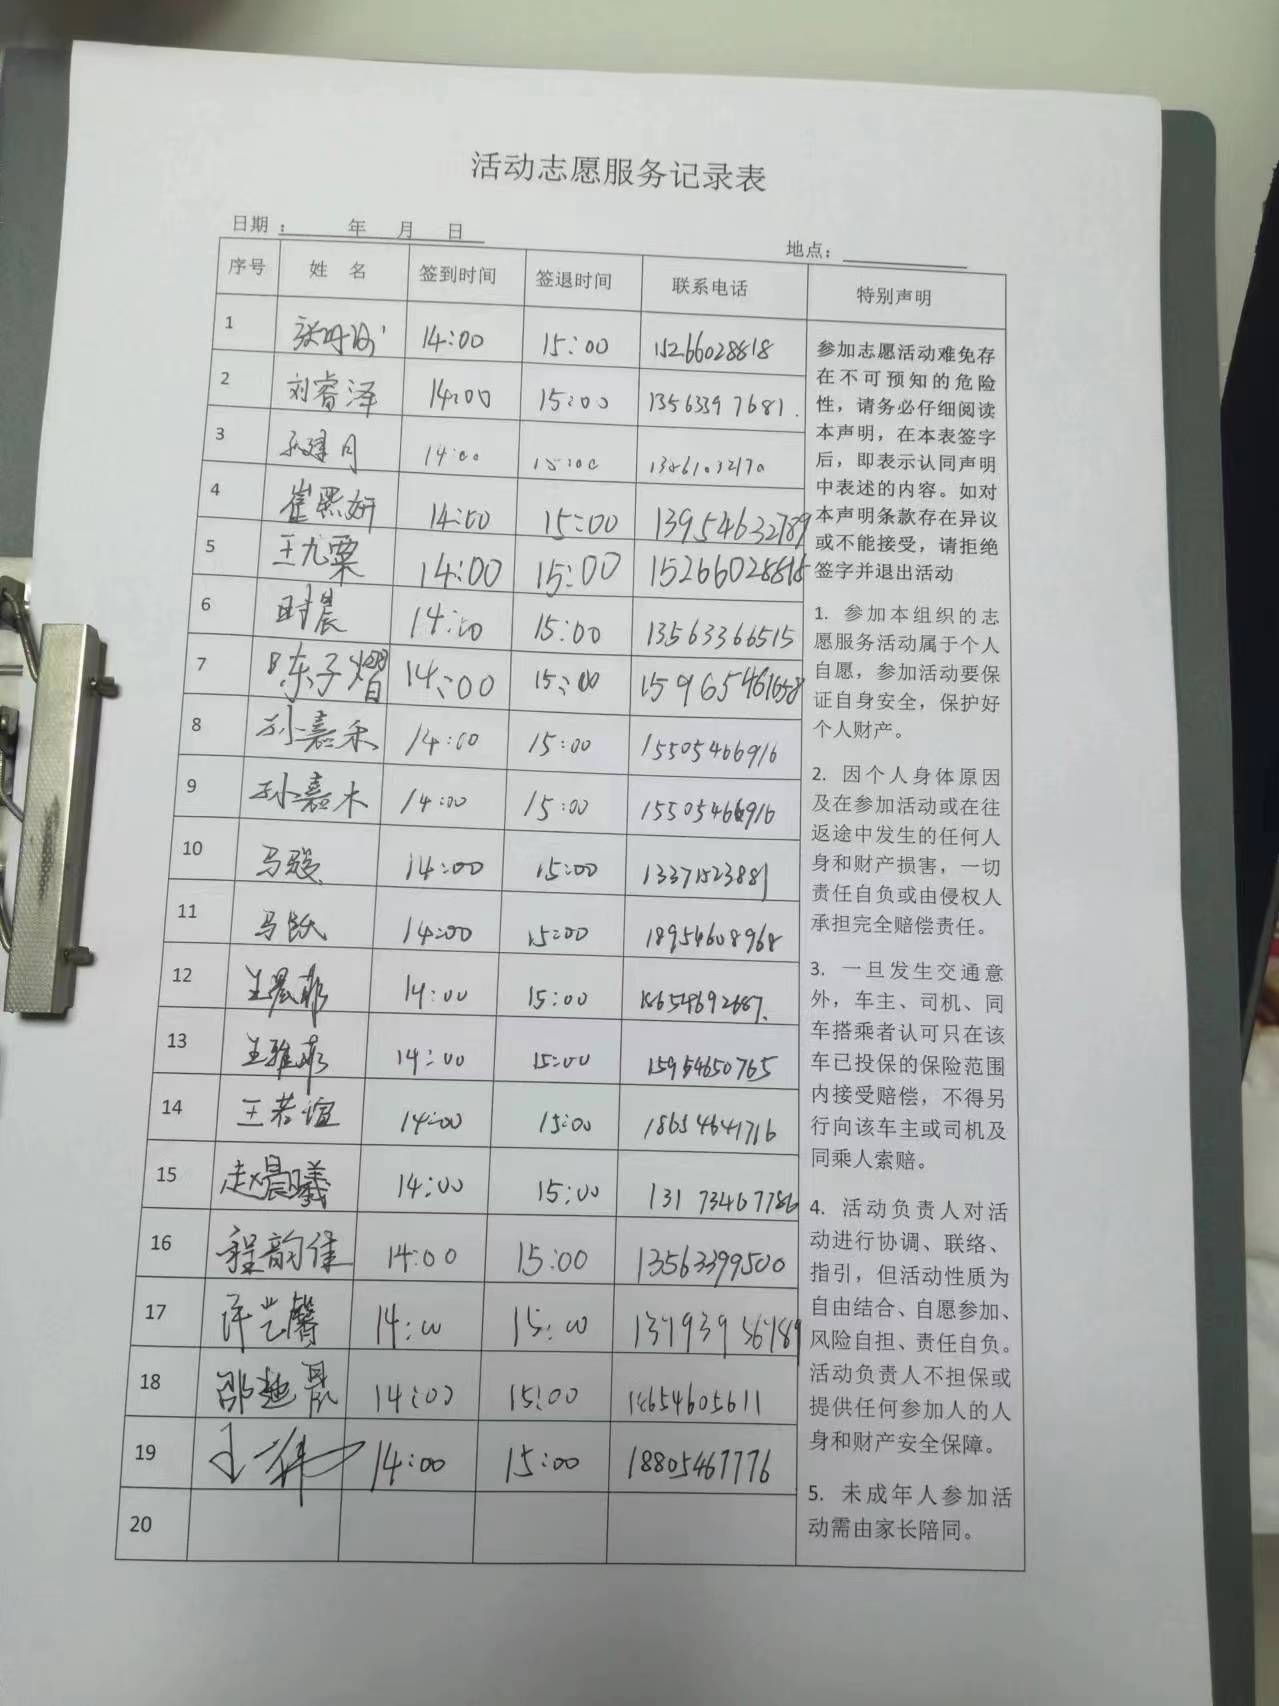 活动志愿服务记录表
日期： 年 月 日
地点：
序号 姓 名 签到时间 签退时间 联系电话 特别声明
1 14:00 15:00 15266028818
2 刘睿泽 14:00 15:00 13563397681.
3 14:00 15:00
4 14:00 15:00 13954632789
5 王尤粟 14:00 15:00 15266028818
6 时晨 14:00 15:00 13563366515
7 陈子熠 14:00 15:00
8 孙嘉禾 14:00 15:00 15505466916
9 孙嘉木 14:00 15:00 15505466916
10 马骏 14:00 15:00 13371523881
11 马跃 14:00 15:00 18954608968
12 王晨菲 14:00 15:00 18654692687.
13 王雅菲 14:00 15:00 15954650765
14 王若谊 14:00 15:00 18654641716
15 赵晨曦 14:00 15:00 13173467786
16 程韵佳 14:00 15:00 13563399500
17 许艺馨 14:00 15:00 13793956789
18 邵迤晨 14:00 15:00 18654605611
19 14:00 15:00 18805467776
20
参加志愿活动难免存
在不可预知的危险
性，请务必仔细阅读
本声明，在本表签字
后，即表示认同声明
中表述的内容。如对
本声明条款存在异议
或不能接受，请拒绝
签字并退出活动
1. 参加本组织的志
愿服务活动属于个人
自愿，参加活动要保
证自身安全，保护好
个人财产。
2. 因个人身体原因
及在参加活动或在往
返途中发生的任何人
身和财产损害，一切
责任自负或由侵权人
承担完全赔偿责任。
3. 一旦发生交通意
外，车主、司机、同
车搭乘者认可只在该
车已投保的保险范围
内接受赔偿，不得另
行向该车主或司机及
同乘人索赔。
4. 活动负责人对活
动进行协调、联络、
指引，但活动性质为
自由结合、自愿参加、
风险自担、责任自负。
活动负责人不担保或
提供任何参加人的人
身和财产安全保障。
5. 未成年人参加活
动需由家长陪同。